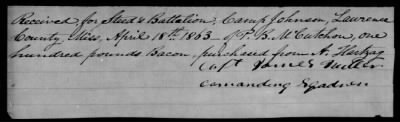 Received, for Studs Battalion, Camp Johnson, Lawrence
County, Miss, April 18th 1863 of B. McCutchon, one
hundred pounds Bacon, purchased from A. Hartzog
Capt James Miller
comanding Sqadron